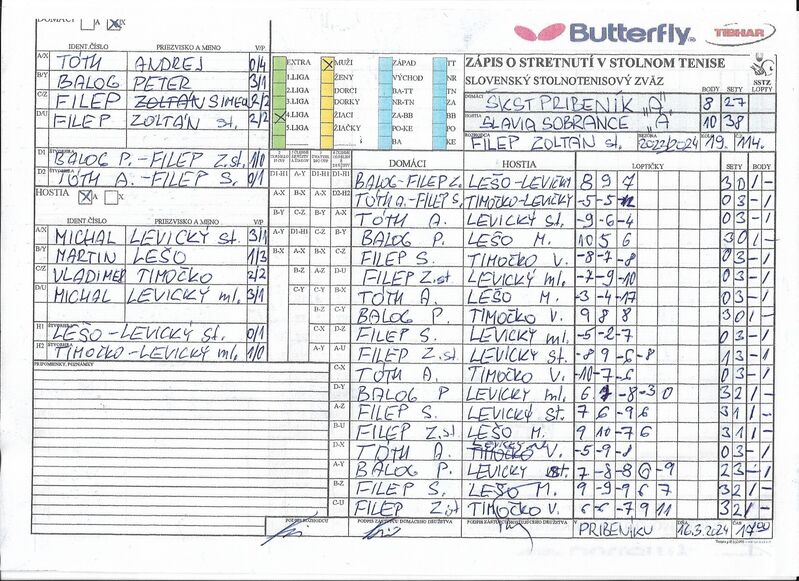 Butterfly TIBHAR
DOMÁCI A X
IDENT.ČÍSLO PRIEZVISKO A MENO V/P
A/X TÓTH ANDREJ 0/4
B/Y BALOG PETER 3/1
C/Z FILEP SIMEON 2/2
D/U FILEP ZOLTÁN st. 2/2
D1 ŠTVORHRA BALOG P.-FILEP Z.st. 1/0
D2 ŠTVORHRA TÓTH A.-FILEP S. 0/1
HOSTIA A X
IDENT.ČÍSLO PRIEZVISKO A MENO V/P
A/X MICHAL LEVICKÝ st. 3/1
B/Y MARTIN LEŠO 1/3
C/Z VLADIMÍR TIMOČKO 2/2
D/U MICHAL LEVICKÝ ml. 3/1
H1 ŠTVORHRA LEŠO-LEVICKÝ st. 0/1
H2 ŠTVORHRA TIMOČKO-LEVICKÝ ml. 1/0
PRIPOMIENKY, POZNÁMKY
EXTRA MUŽI ZÁPAD TT
1.LIGA ŽENY VÝCHOD NR
2.LIGA DORCI BA-TT TN
3.LIGA DORKY NR-TN ZA
4.LIGA ŽIACI ZA-BB BB
5.LIGA ŽIAČKY PO-KE PO
BA KE
ZÁPIS O STRETNUTÍ V STOLNOM TENISE
SLOVENSKÝ STOLNOTENISOVÝ ZVÄZ SSTZ
BODY SETY LOPTY
DOMÁCI ŠKST PRIBENÍK "A" 8 27
HOSTIA SLAVIA SOBRANCE "A" 10 38
ROZHODCA FILEP ZOLTÁN st. SEZÓNA 2023/2024 19. 114.
DOMÁCI HOSTIA LOPTIČKY SETY BODY
BALOG-FILEP Z. LEŠO-LEVICKÝ 8 9 7 3 0 1 -
TÓTH A.-FILEP S. TIMOČKO-LEVICKÝ -5-5 0 3 - 1
TÓTH A. LEVICKÝ st. -9-6-4 0 3 - 1
BALOG P. LEŠO M. 10 5 6 3 0 1 -
FILEP S. TIMOČKO V. -8-7-8 0 3 - 1
FILEP Z.st. LEVICKÝ ml. -7-9-10 0 3 - 1
TÓTH A. LEŠO M. -3-4-17 0 3 - 1
BALOG P. TIMOČKO V. 9 8 8 3 0 1 -
FILEP S. LEVICKÝ ml. -5-2-7 0 3 - 1
FILEP Z.st. LEVICKÝ st. -8 9-6-8 1 3 - 1
TÓTH A. TIMOČKO V. -10-7-6 0 3 - 1
BALOG P LEVICKÝ ml. 6 -8-3 0 3 2 1 -
FILEP S. LEVICKÝ st. 7 6-9 6 3 1 1 -
FILEP Z.st. LEŠO M. 9 10-7 6 3 1 1 -
TÓTH A. LEVICKÝ ml. -5-9-8 0 3 - 1
BALOG P. LEVICKÝ st. 7-8-8 6-9 2 3 - 1
FILEP S. LEŠO M. 9-9-9 6 7 3 2 1 -
FILEP Z.st TIMOČKO V. 6-6-7 9 11 3 2 1 -
PODPIS ROZHODCU PODPIS ZÁSTUPCU DOMÁCEHO DRUŽSTVA PODPIS ZÁSTUPCU HOSŤUJÚCEHO DRUŽSTVA V PRIBENÍKU DŇA 16.3.2024 ČAS 17:00